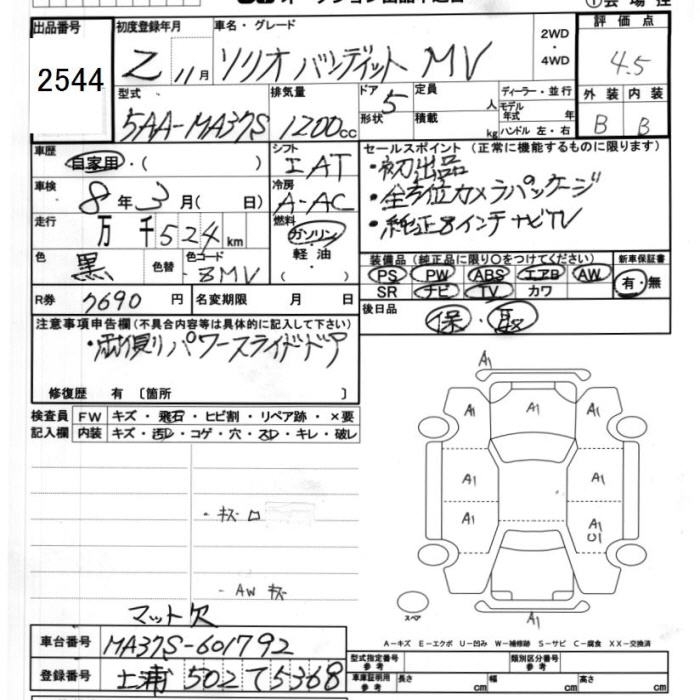 出品番号 2544
初度登録年月 2 11月
車名・グレード ソリオバンディット MV
2WD・4WD
評価点 4.5
外装 B 内装 B
型式 5AA-MA37S
排気量 1200cc
ドア 5 形状
定員 人
積載 kg
ディーラー・並行
モデル年式 年
ハンドル 左・右
車歴 自家用・( )
シフト IAT
セールスポイント (正常に機能するものに限ります)
・初出品
・全方位カメラパッケージ
・純正8インチナビTV
車検 8年3月( 日)
冷房 A-AC
走行 万 千524km
燃料 ガソリン・軽油・( )
色 黒 色替 色コード ZMV
装備品 (純正品に限り○をつけてください)
PS PW ABS エアB AW
SR ナビ TV カワ
新車保証書 有・無
R券 7690円 名変期限 月 日
後日品 保・取
注意事項申告欄(不具合内容等は具体的に記入して下さい)
・両側パワースライドドア
修復歴 有 〔箇所 〕
検査員記入欄 FW キズ・飛石・ヒビ割・リペア跡・×要
内装 キズ・汚D・コゲ・穴・スD・キレ・破レ
A1
A1 A1 A1
A1 A1
A1 A1
U1
A1
・キズ ロ
・AW キズ
マット欠
スペア
A-キズ E-エクボ U-凹み W-補修跡 S-サビ C-腐食 XX-交換済
車台番号 MA37S-601792
登録番号 土浦 502 て 5368
型式指定番号 参考
類別区分番号 参考
車庫証明用 参考 長さ cm 幅 cm 高さ cm